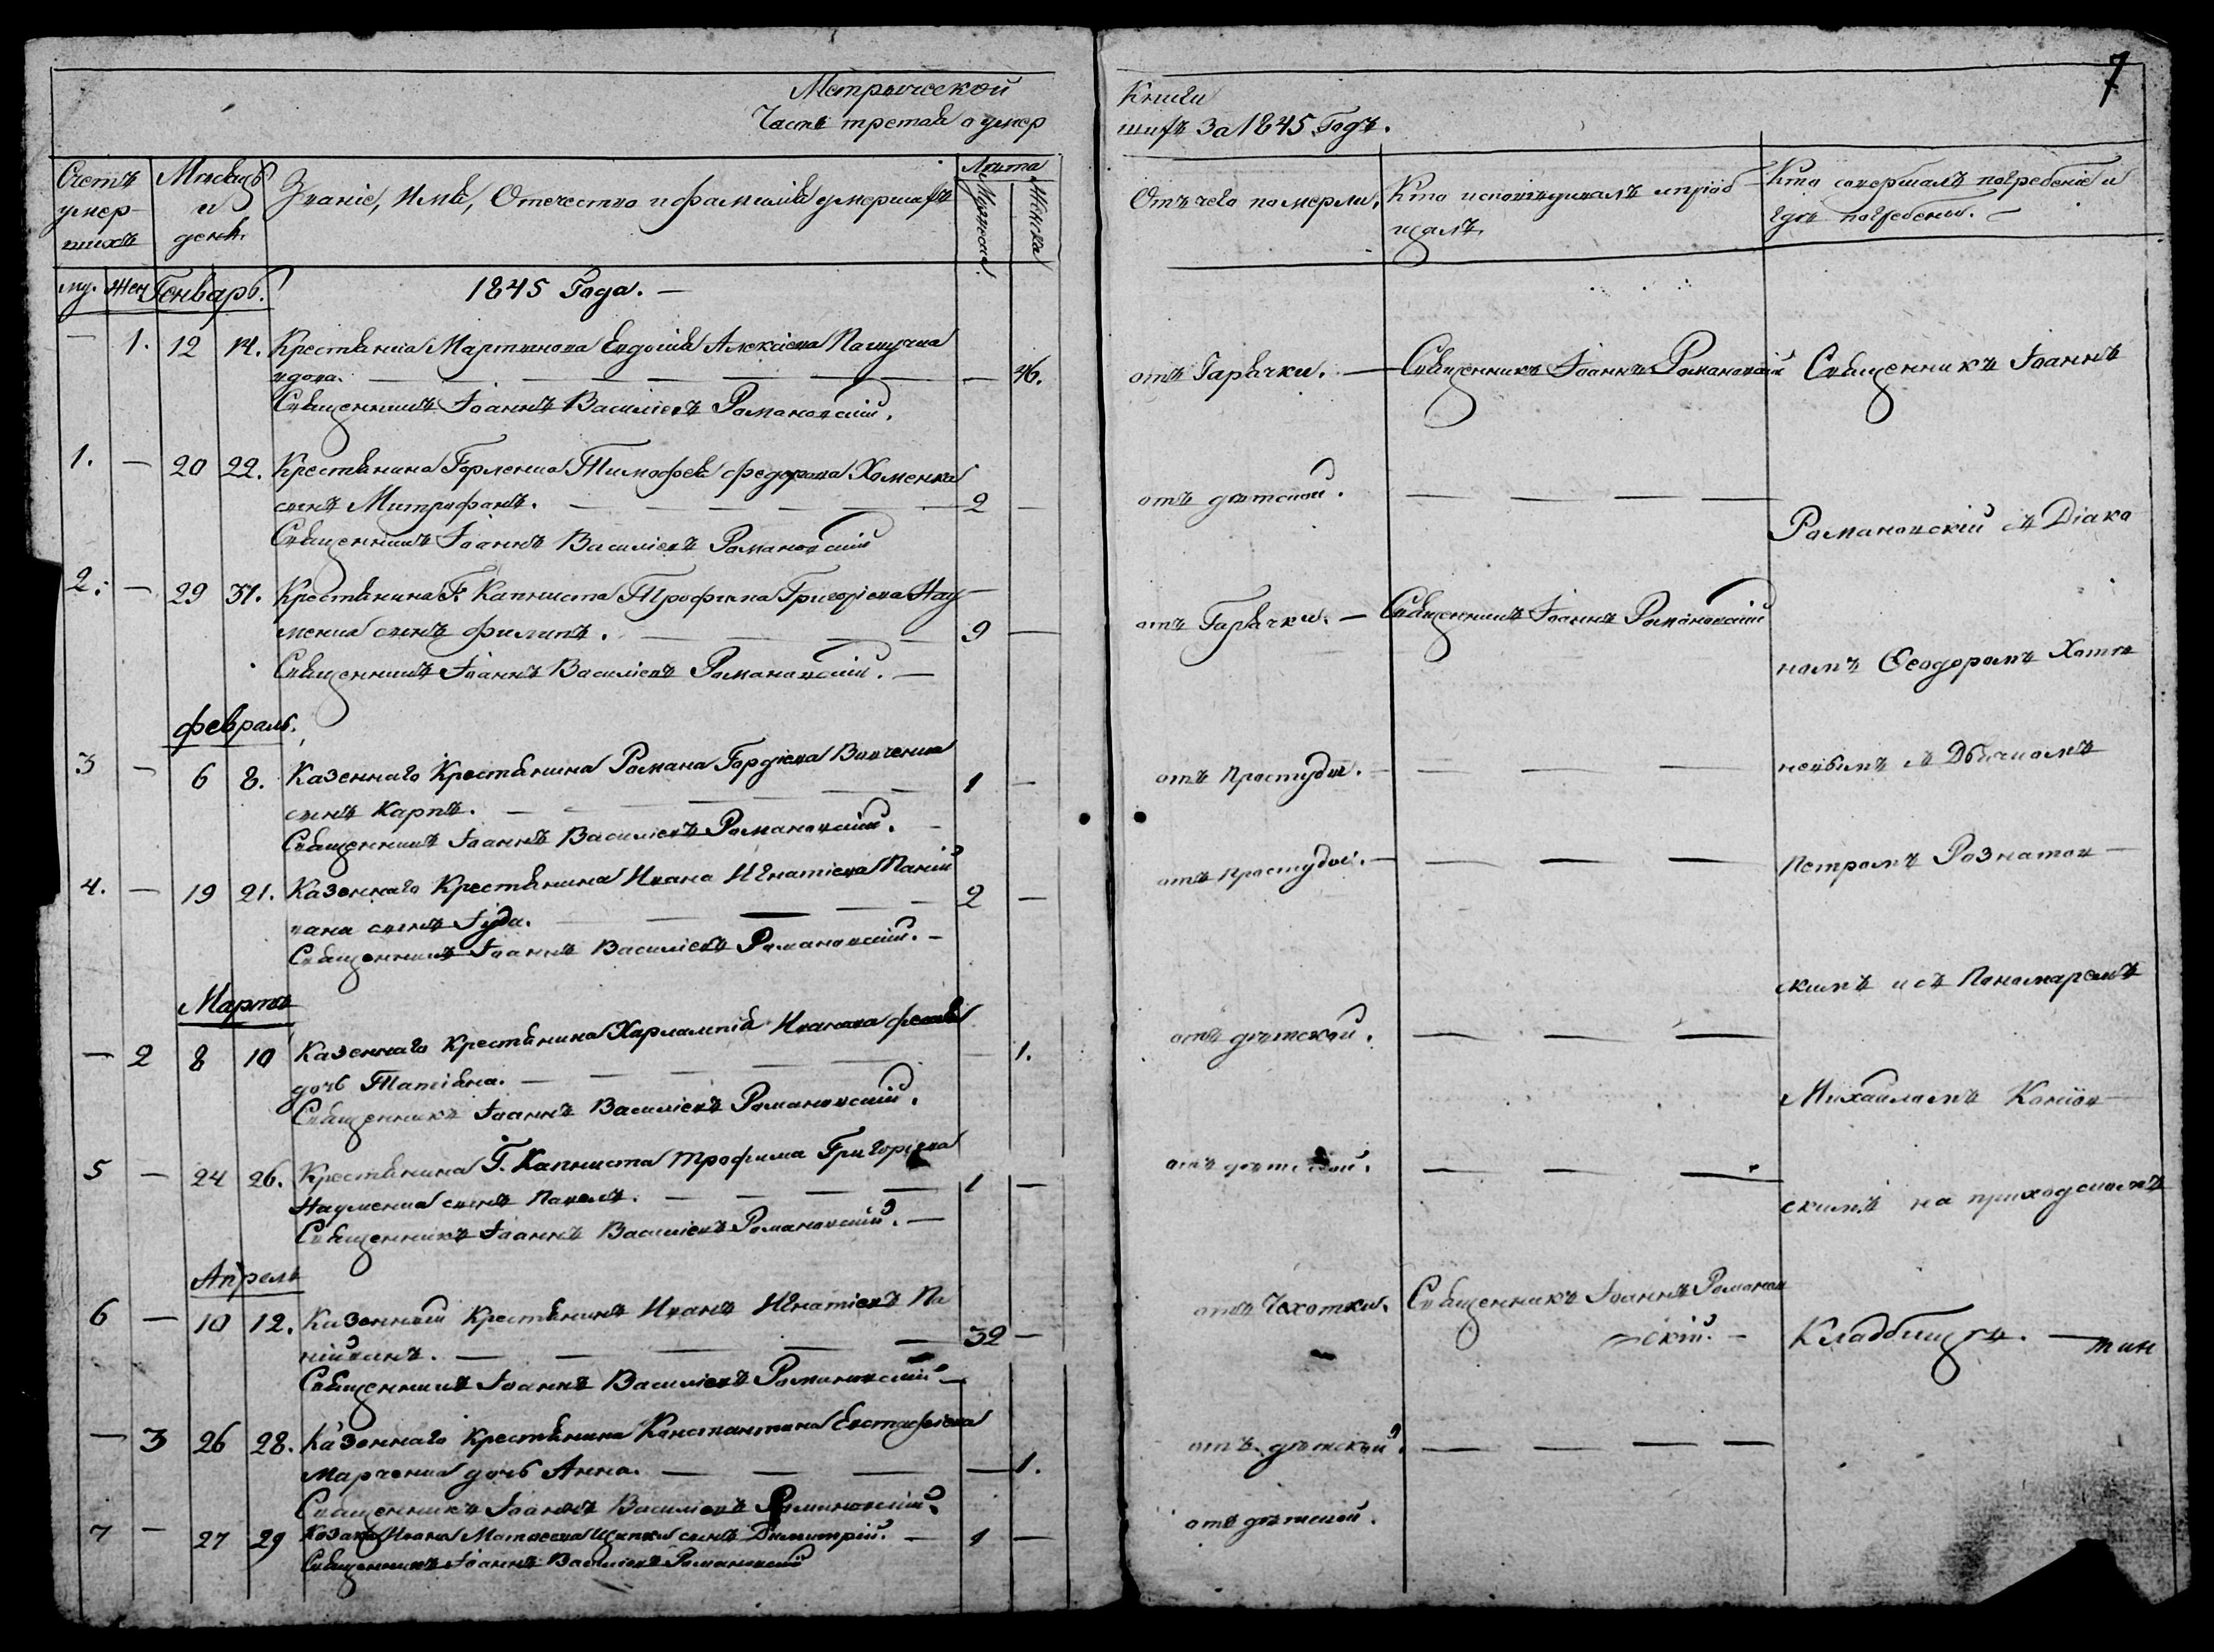 Метрической
Часть третая о умер
Счетъ умер-шихъ
Мѣсяцъ и день.
Званіе, Имя, Отечество и фамилія умершихъ
Лѣта
Мужска.
Женска
му. жен
Генварь.
1845 Года. —
— 1. 12 14. Крестьянка Мартынова Евдокія Алексіева
вдова. — 46.
Священникъ Іоаннъ Василіевъ Романовскій.
1. — 20 22. Крестьянина Тимофея Федорова Хоменка
сынъ Митрофанъ. — 2 —
Священникъ Іоаннъ Василіевъ Романовскій
2. — 29 31. Крестьянина Г. Капниста Трофима Григоріева Нау-
менка сынъ Филипъ. — 9 —
Священникъ Іоаннъ Василіевъ Романовскій. —
февраль.
3 — 6 8. Казеннаго Крестьянина Романа Гордіева Вовченка
сынъ Карпъ. — 1 —
Священникъ Іоаннъ Василіевъ Романовскій. —
4. — 19 21. Казеннаго Крестьянина Ивана Игнатіева Паній
вана сынъ Іуда. — 2 —
Священникъ Іоаннъ Василіевъ Романовскій. —
Мартъ
— 2 8 10 Казеннаго Крестьянина Харлампія Иванова
дочь Татіяна. — 1.
Священникъ Іоаннъ Василіевъ Романовскій.
5 — 24 26. Крестьянина Г. Капниста Трофима Григоріева
Науменка сынъ Павелъ. — 1 —
Священникъ Іоаннъ Василіевъ Романовскій. —
Апрель
6 — 10 12. Казенный Крестьянинъ Иванъ Игнатіевъ Па
нійванъ. — 32 —
Священникъ Іоаннъ Василіевъ Романовскій —
— 3 26 28. Казеннаго Крестьянина Константина Евстафіева
Марченка дочь Анна. — 1.
Священникъ Іоаннъ Василіевъ Романовскій.
7 — 27 29 Козака Ивана Матвеева сынъ Димитрій. — 1 —
Священникъ Іоаннъ Василіевъ Романовскій
7
Книги
шихъ За 1845 Годъ.
Отъ чего померли.
Кто исповѣдывалъ и пріоб-
щалъ.
Кто совершалъ погребеніе и
гдѣ погребены. —
отъ Гарячки. — Священникъ Іоаннъ Романовскій Священникъ Іоаннъ
отъ дѣтской. —
Романовскій съ Діако
отъ Гарячки. — Священникъ Іоаннъ Романовскій
номъ Ѳеодоромъ
отъ Простуды. —
съ Дьячкомъ
отъ Простуды. —
Петромъ Рознатов—
скимъ и съ Пономаремъ
отъ дѣтской. —
Михаиломъ
отъ дѣтской. —
скимъ на приходскомъ
отъ Чехотки. Священникъ Іоаннъ Романов
скій. — Кладбищѣ. —
отъ дѣтской. —
отъ дѣтской.